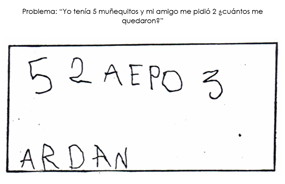 Problema: “Yo tenía 5 muñequitos y mi amigo me pidió 2 ¿cuántos me
quedaron?”
5 2 A E P O 3
A R D A N